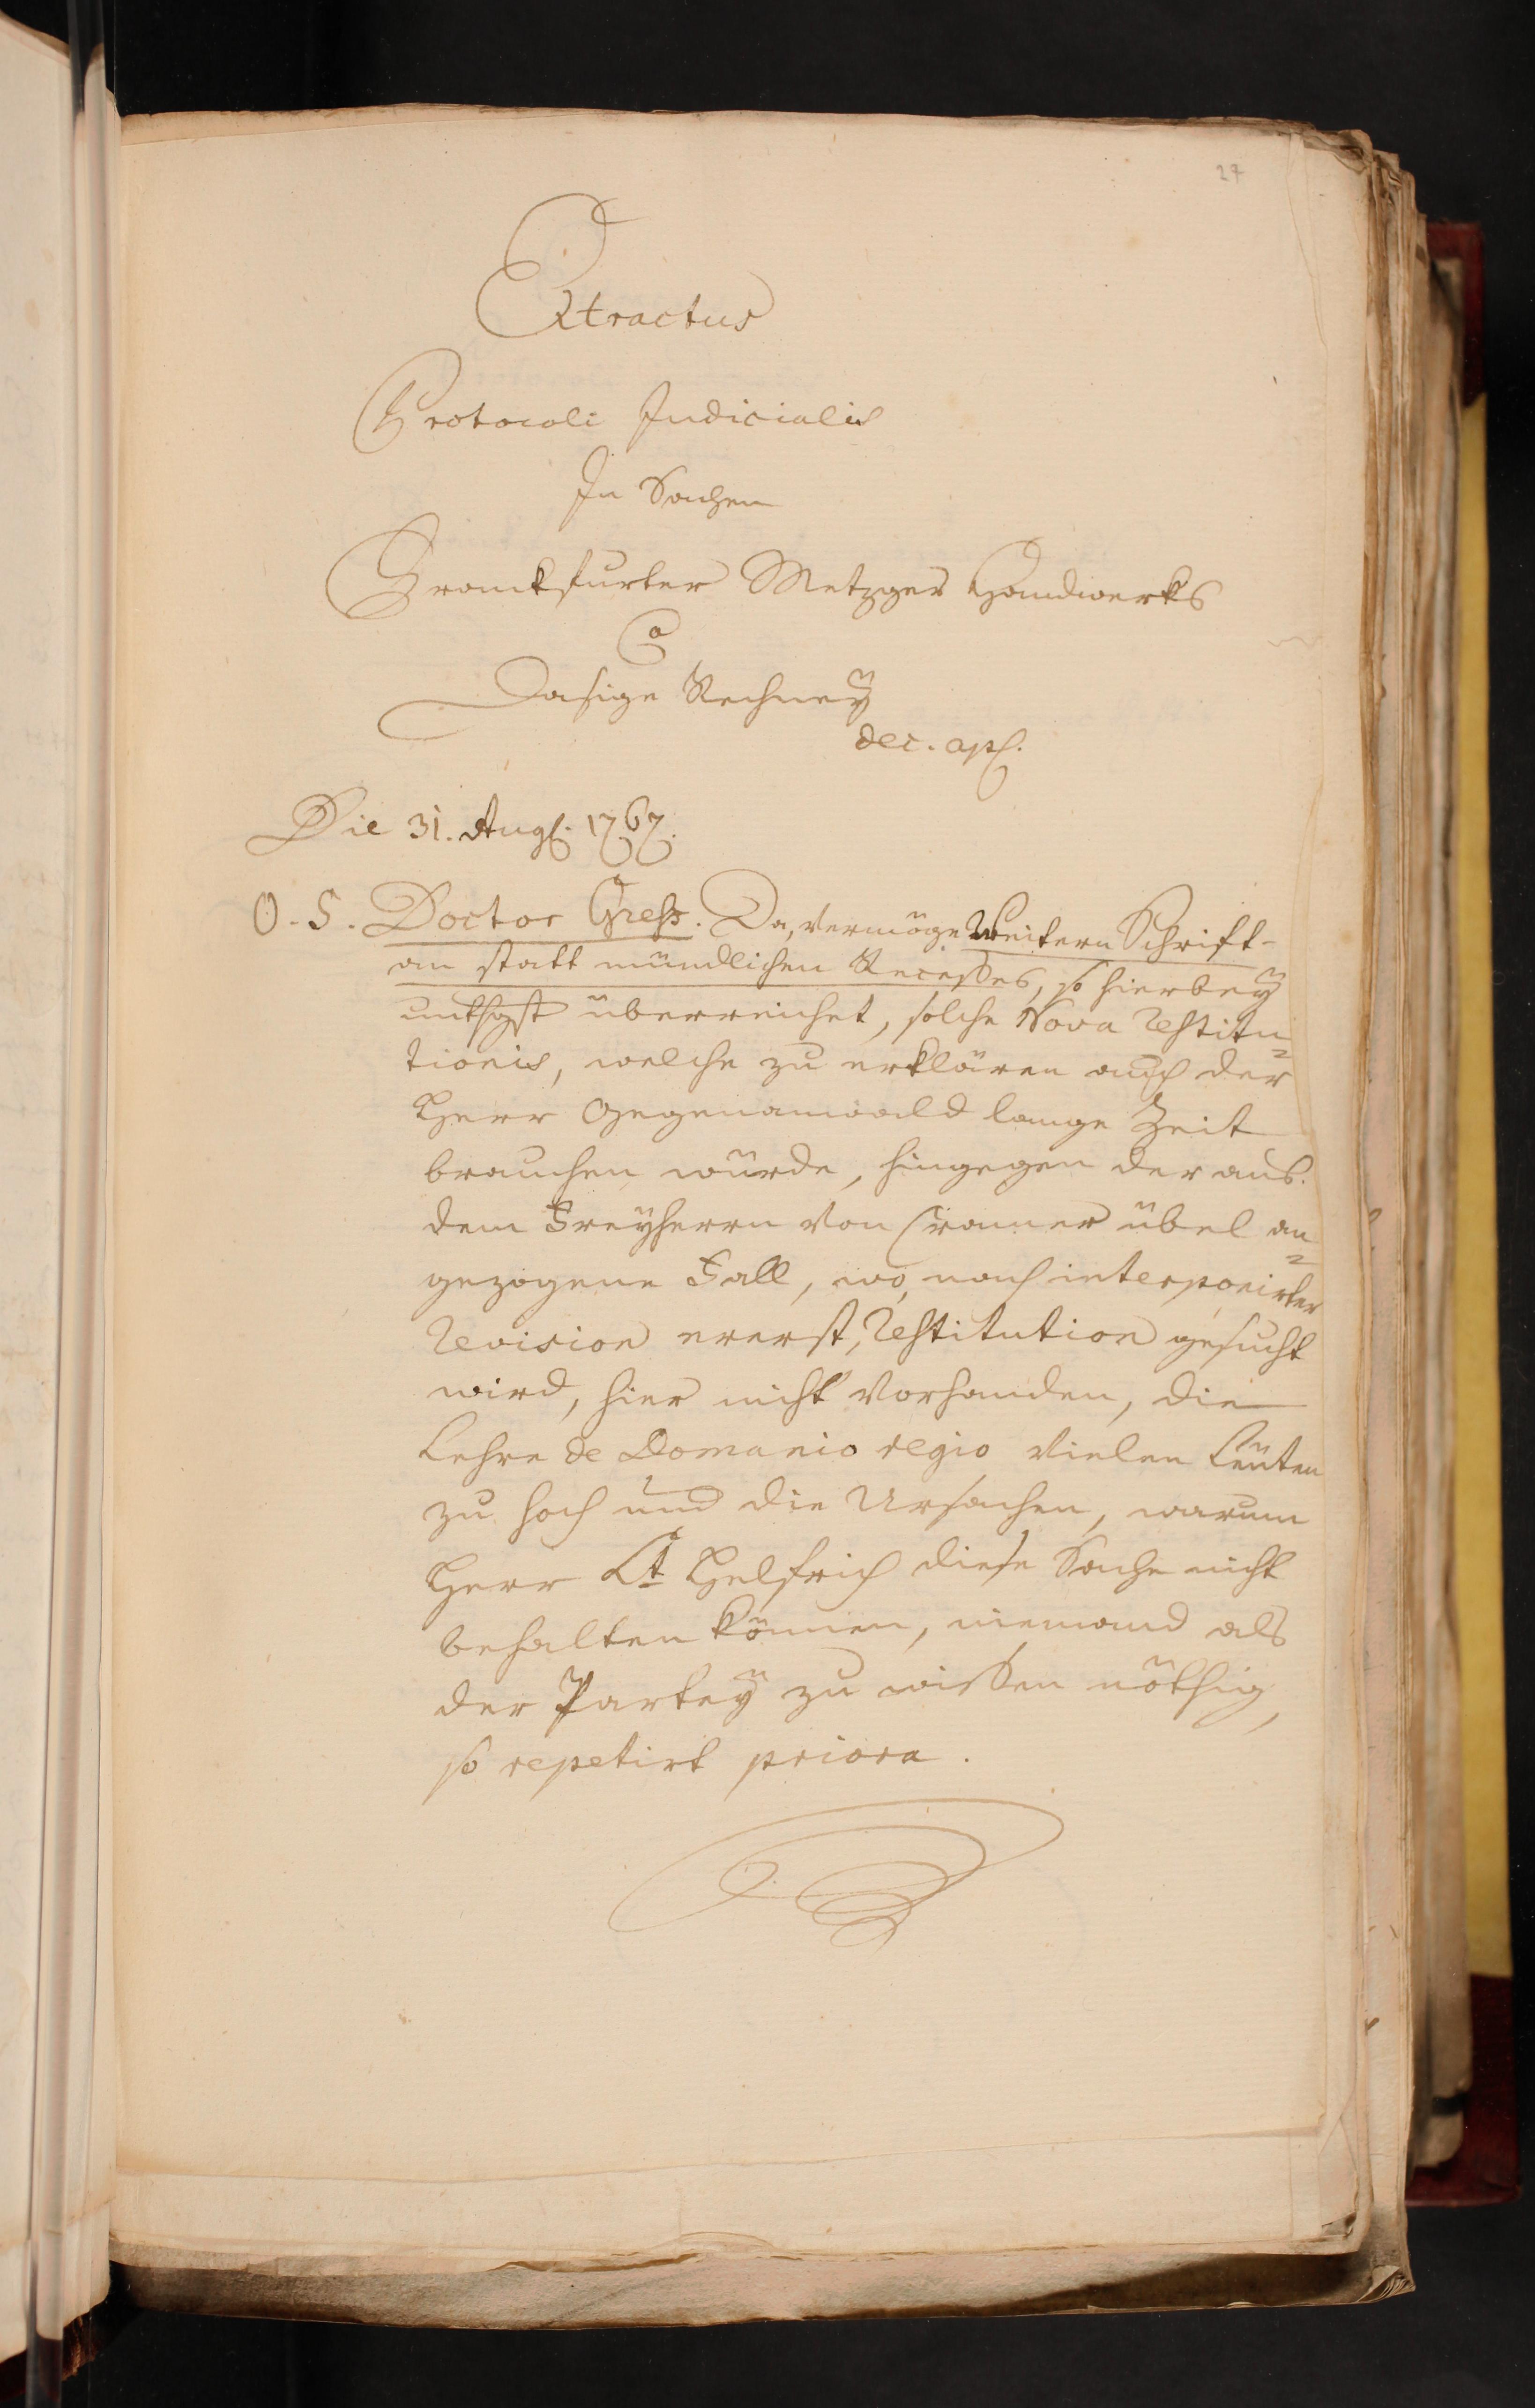 27
Extractus
Protocoli Judicialis
In Sachen
Franckfurter Metzger Handwerks
Ca
Dasige Rechney
dec. apl.
Die 31. Aug. 1767.
O. S. Doctor Greß. Da, vermöge Weitern Schrift-
an statt mündlichen Recesses, so hierbey
unthgst überreichet, solche Nova Restitu-
tionis, welche zu erklären auch der
Herr Gegenanwald lange Zeit
brauchen würde, hingegen der aus
dem Freyherrn von Cramer übel an-
gezogene Fall, wo, nach interponirter
Revision ererst, Restitution gesucht
wird, hier nicht vorhanden, die
Lehre de Domanio regio vielen Leüten
zu hoch und die Ursachen, warum
Herr Lt Helfrich diese Sache nicht
behalten können, niemand als
der Partey zu wissen nöthig,
so repetirt priora.